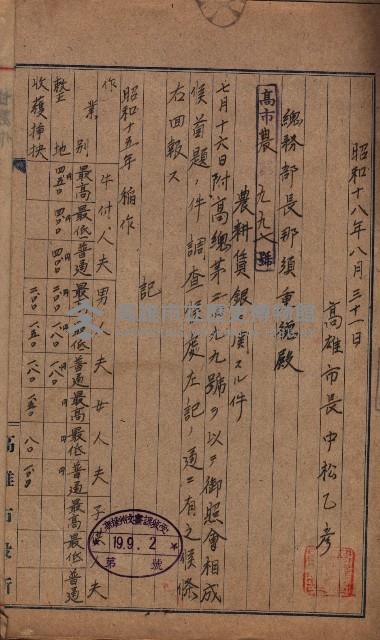 昭和十八年八月三十一日
高雄市長中松乙彦
總務部長那須重德殿
高市農 九九七號
農耕賃銀ニ関スル件
七月十六日附高總第二九九號ヲ以テ御照會相成
候首題ノ件調査候處左記ノ通ニ有之候條
右回報ス
記
昭和十五年 稲作
作業別 牛付人夫 男人夫 女人夫 子供人夫
最高 最低 普通 最高 最低 普通 最高 最低 普通 最高 最低 普通
整地 四五〇 四〇〇 四〇〇
收穫挿秧 二〇〇 一五〇 一八〇 一五〇 八〇 一〇〇
高雄市役所
19.9.2
第 號